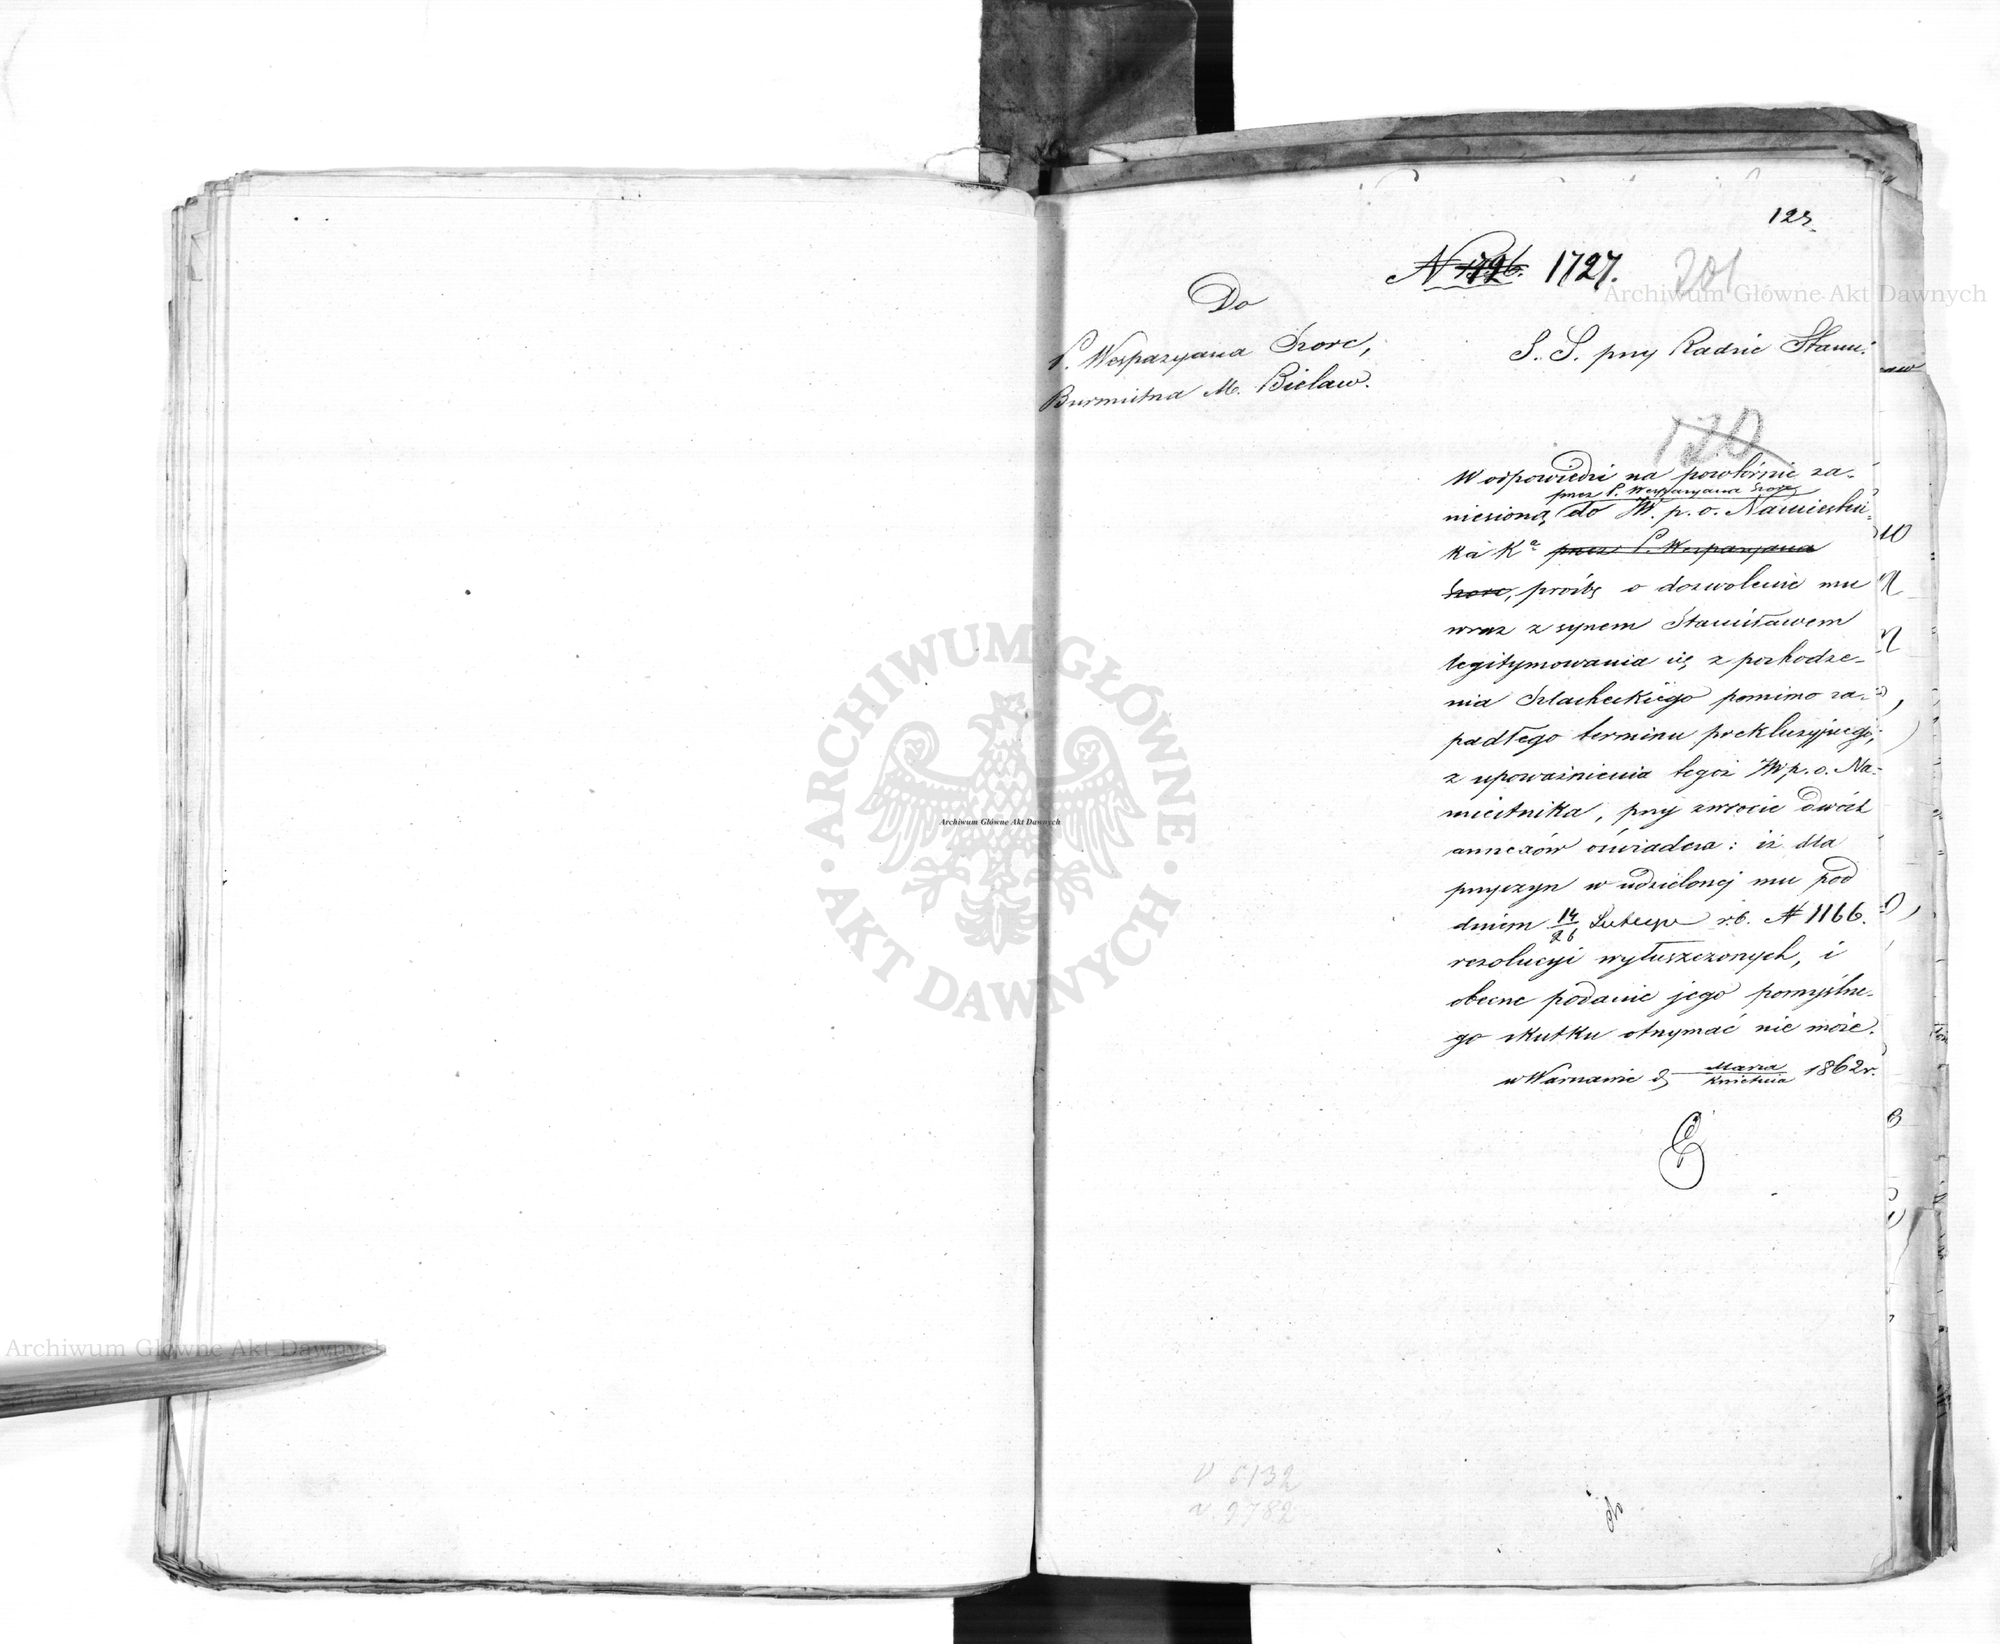 123.
N 1726. 1727. 201
Do
P. Wespazyana Szorc,
Burmistrza M. Bielaw.
S. S. przy Radzie Stanu.
120
W odpowiedzi na powtórnie za-
przez P. Wespazyana Szorc
niesioną do JW. p. o. Namiestni-
ka Kа przez P. Wespazyana
Szorc, prośbę o dozwolenie mu
wraz z synem Stanisławem
legitymowania się z pochodze-
nia Szlacheckiego pomimo za-
padłego terminu prekluzyjnego,
z upoważnienia tegoż JW p. o. Na-
miestnika, przy zwrocie dwóch
annexów oświadcza: iż dla
przyczyn w udzielonej mu pod
dniem 14/26 Lutego r.b. N 1166.
rezolucyi wyłuszczonych, i
obecne podanie jego pomyślne-
go skutku otrzymać nie może.
w Warszawie d. Marca/Kwietnia 1862 r.
V 5132
V. 9782
Archiwum Główne Akt Dawnych
Archiwum Główne Akt Dawnych
Archiwum Główne Akt Dawnych
ARCHIWUM GŁÓWNE · AKT DAWNYCH ·